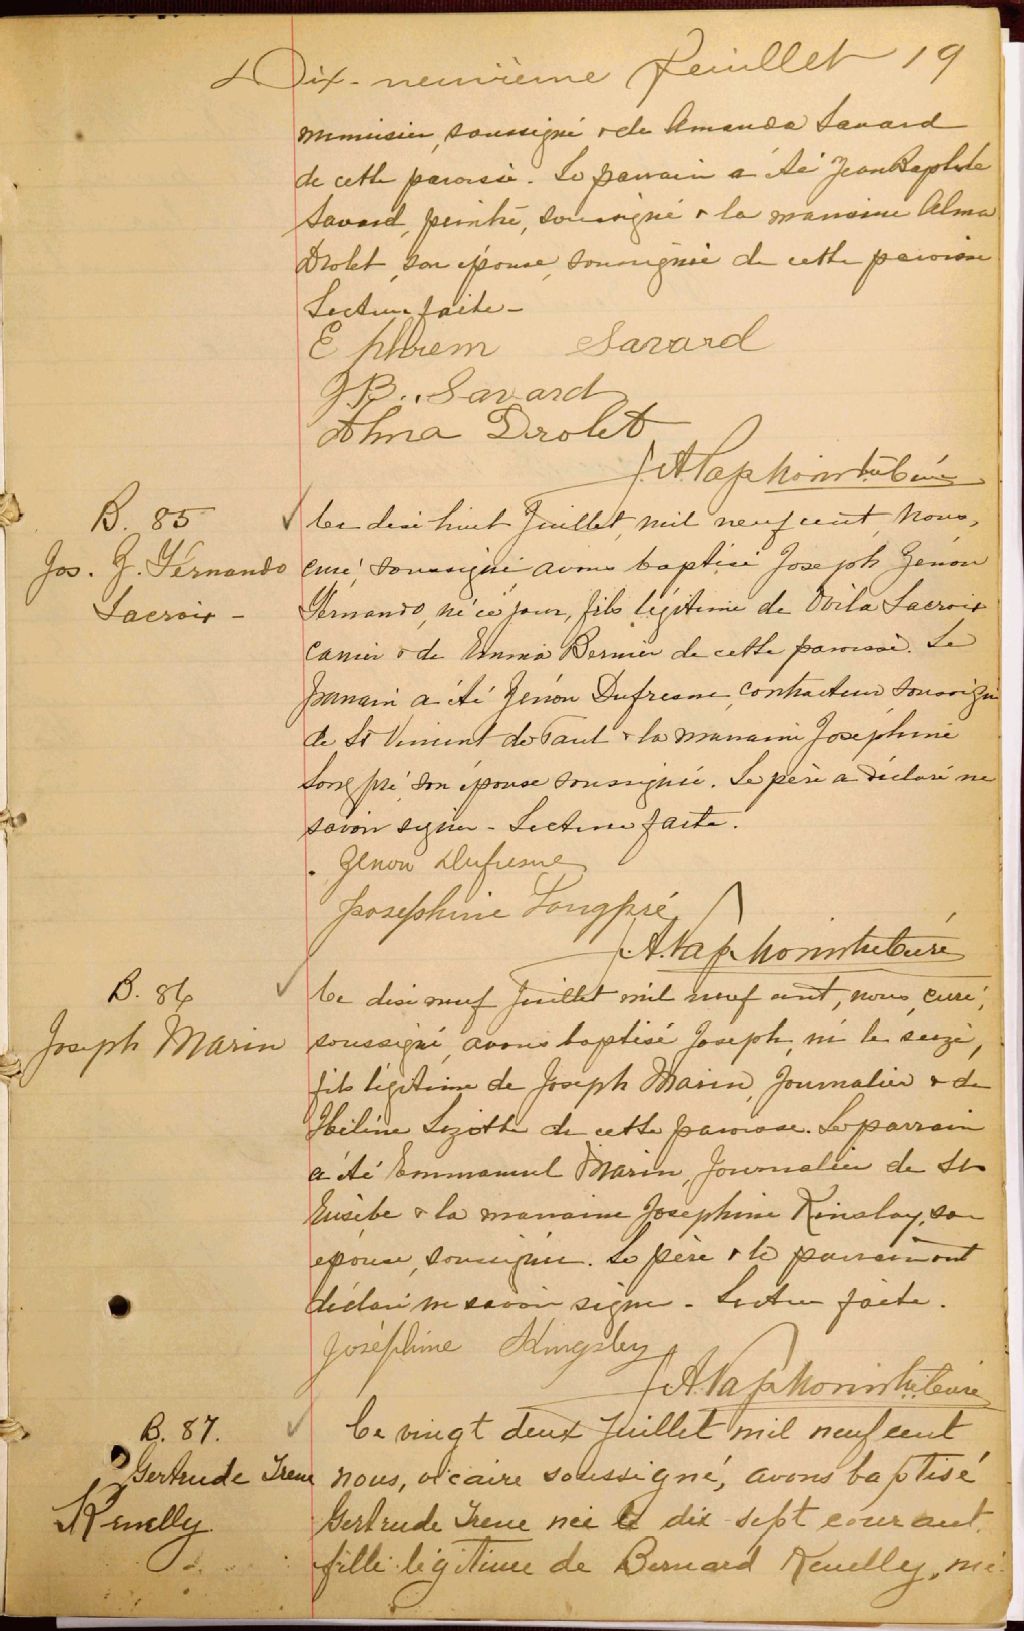 Dix-neuvième feuillet 19
menuisier, soussigné & de Amanda Savard
de cette paroisse. Le parrain a été Jean Baptiste
Savard, peintre, soussigné & la marraine Alma
Drolet, son épouse, soussignée de cette paroisse
Lecture faite -
Ephrem Savard
J B. Savard
Alma Drolet
ptre Curé
B. 85
Jos. Z. Fernando
Lacroix -
Le dix huit Juillet, mil neuf cent, Nous,
curé, soussigné avons baptisé Joseph Zénon
Fernando, né ce jour, fils légitime de Ovila Lacroix
& de Emma Bernier de cette paroisse. Le
parrain a été Zénon Dufresne, contracteur soussigné
de St Vincent de Paul & la marraine Joséphine
Longpré, son épouse soussignée. Le père a déclaré ne
savoir signer - Lecture faite.
Zenon Dufresne
Josephine Longpré
ptre Curé
B. 86
Joseph Marin
Le dix neuf Juillet mil neuf cent, nous, curé,
soussigné, avons baptisé Joseph, né le seize,
fils légitime de Joseph Marin, Journalier & de
Hélène Lizotte de cette paroisse. Le parrain
a été Emmanuel Marin, Journalier de St
Eusèbe & la marraine Josephine Kinslay, son
épouse, soussignée. Le père & le parrain ont
déclaré ne savoir signer - Lecture faite.
Joséphine Kingsley
ptre Curé
B. 87.
Gertrude Irene
Kenelly
Le vingt deux Juillet mil neuf cent
nous, vicaire soussigné, avons baptisé
Gertrude Irene née le dix sept courant,
fille légitime de Bernard Kenelly, mé-